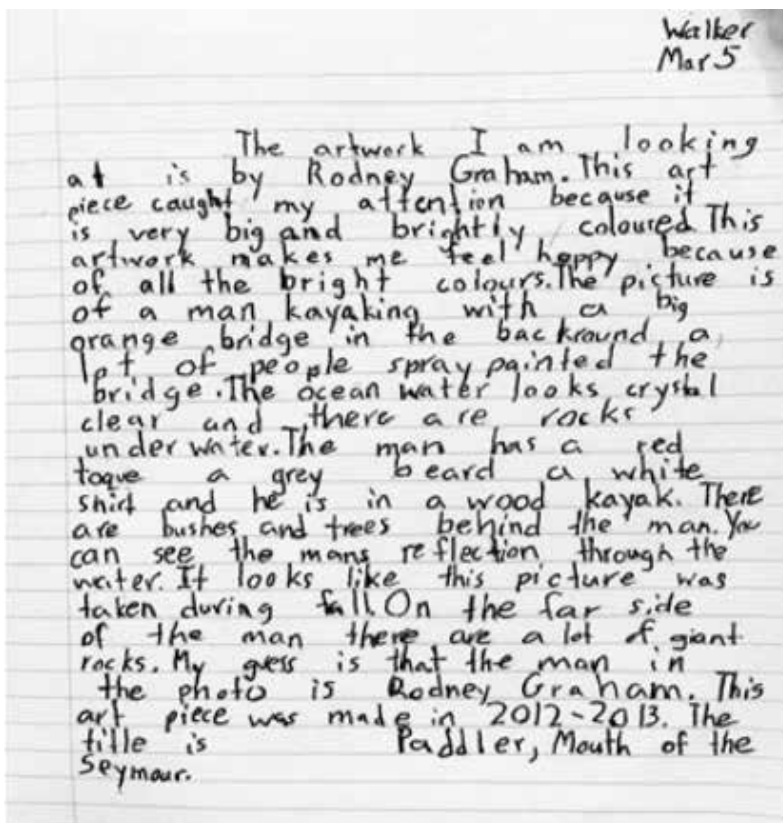 Walker
Mar 5
The artwork I am looking
at is by Rodney Graham. This art
piece caught my attention because it
is very big and brightly coloured This
artwork makes me feel happy because
of all the bright colours. The picture is
of a man kayaking with a big
orange bridge in the backround a
lot of people spray painted the
bridge. The ocean water looks crystal
clear and there are rocks
under water. The man has a red
toque a grey beard a white
shirt and he is in a wood kayak. There
are bushes and trees behind the man. You
can see the mans reflection through the
water. It looks like this picture was
taken during fall. On the far side
of the man there are a lot of giant
rocks. My guess is that the man in
the photo is Rodney Graham. This
art piece was made in 2012-2013. The
title is Paddler, Mouth of the
Seymour.